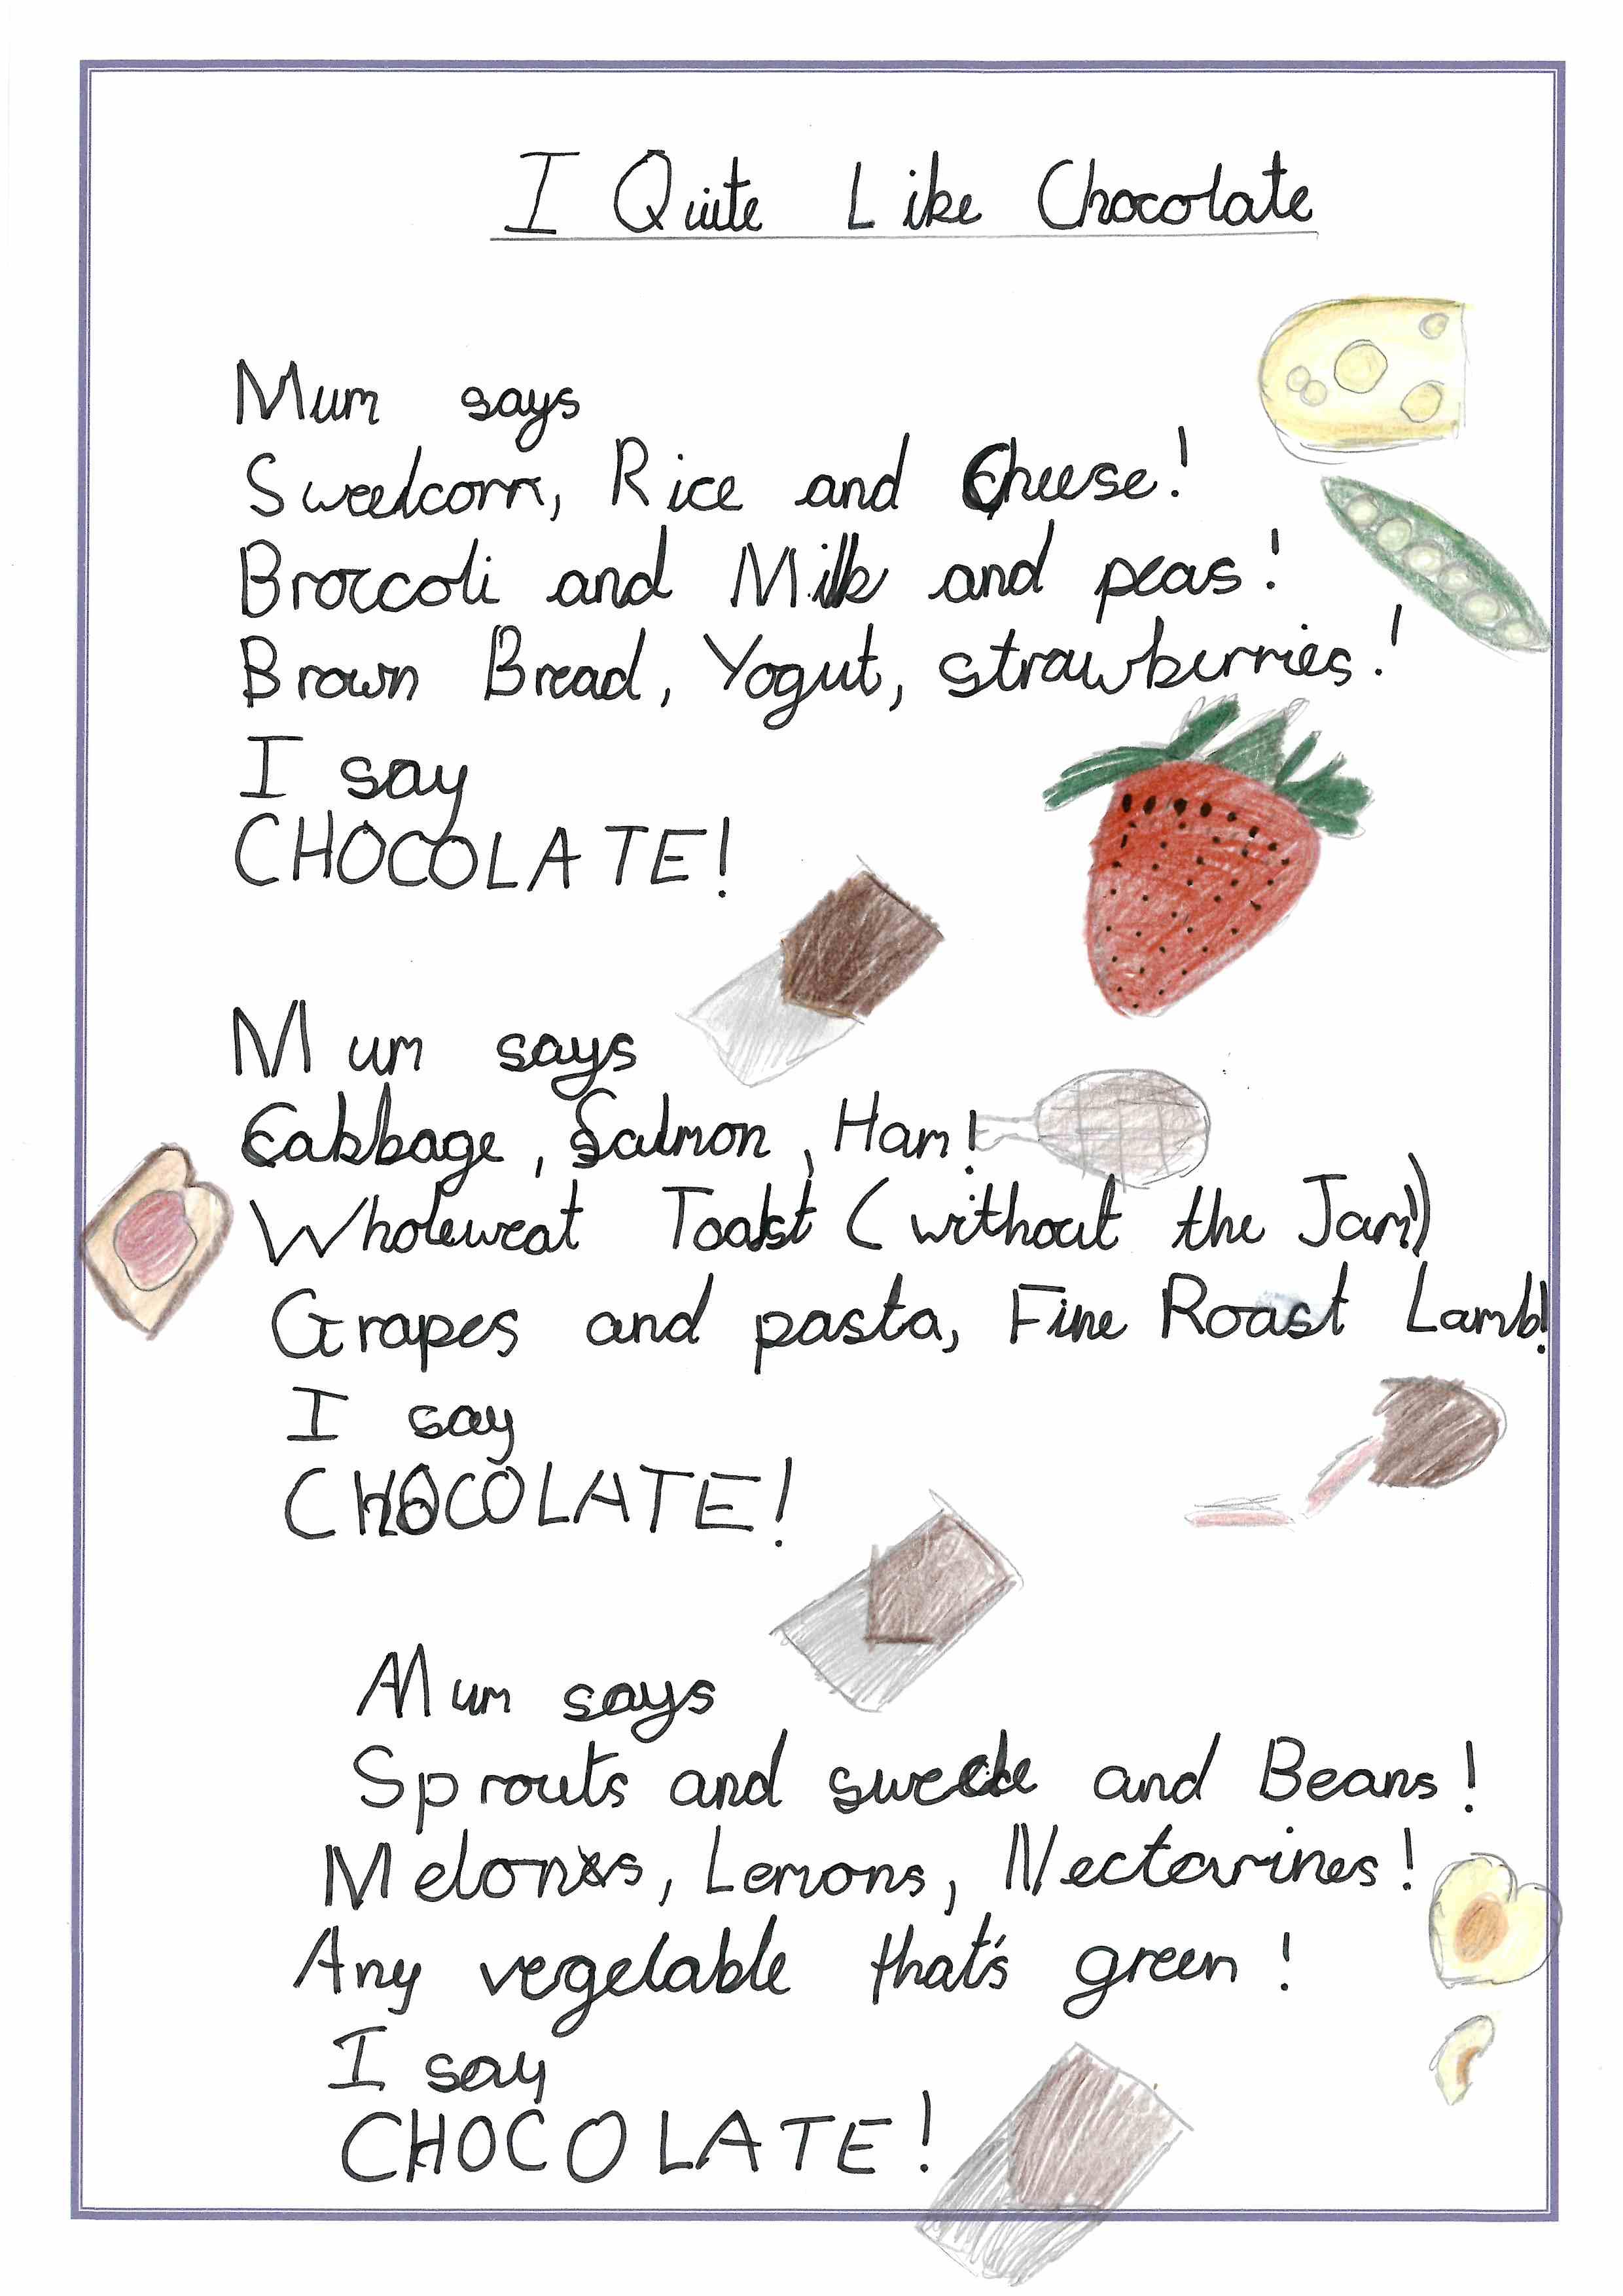 I Quite Like Chocolate
Mum says
Sweetcorn, Rice and Cheese!
Broccoli and Milk and peas!
Brown Bread, Yogut, strawberries!
I say
CHOCOLATE!
Mum says
Cabbage, Salmon, Ham!
Wholeweat Toast (without the Jam!)
Grapes and pasta, Fine Roast Lamb!
I say
CHOCOLATE!
Mum says
Sprouts and swede and Beans!
Melons, Lemons, Nectarines!
Any vegetable that's green!
I say
CHOCOLATE!